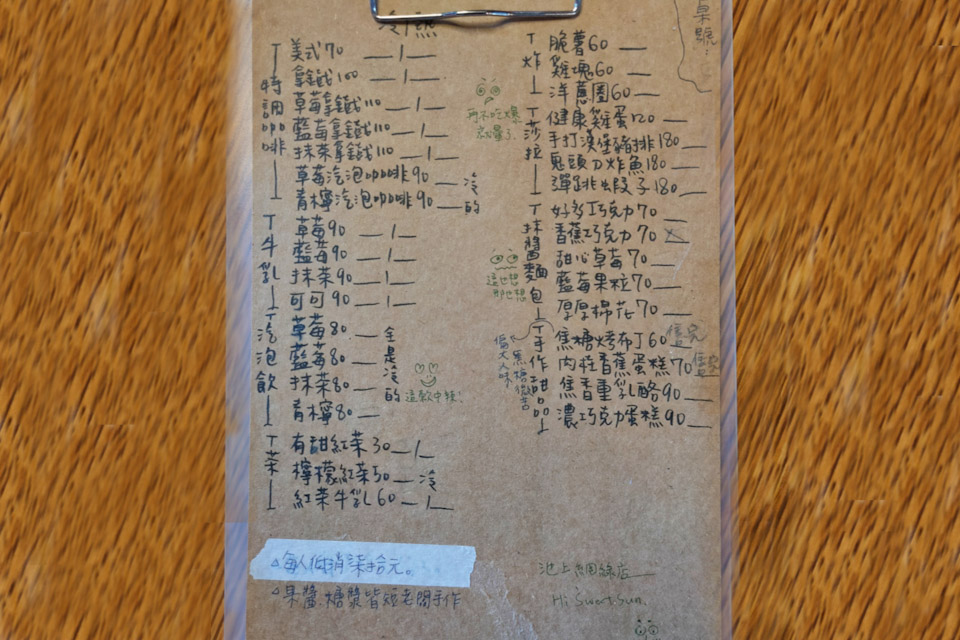 冷/熱
特調咖啡
美式70 __/__
拿鐵100 __/__
草莓拿鐵110 __/__
藍莓拿鐵110 __/__
抹茶拿鐵110 __/__
草莓汽泡咖啡90 __
青檸汽泡咖啡90 __
冷的
牛乳
草莓90 __/__
藍莓90 __/__
抹茶90 __/__
可可90 __/__
汽泡飲
草莓80 __
藍莓80 __
抹茶80 __
青檸80 __
全是冷的
這款中辣!
茶
有甜紅茶30 __/__
檸檬紅茶50 __冷
紅茶牛乳60 __/__
△每人低消柒拾元。
△果醬.糖漿皆短老闆手作
桌號:
炸
脆薯60 __
雞塊60 __
洋蔥圈60 __
再不吃爆
就暈了
莎拉
健康雞蛋120 __
手打漢堡豬排180 __
鬼頭刀炸魚180 __
彈跳蝦子180 __
抹醬麵包
好多巧克力70 __
香蕉巧克力70
甜心草莓70 __
藍莓果粒70 __
厚厚棉花70 __
這也想
那也想
手作甜品
焦糖烤布丁60 售完
內柱香蕉蛋糕70 售完
焦香重乳酪90 __
濃巧克力蛋糕90 __
偏大人味
焦糖微苦
Hi Sweet Sun.